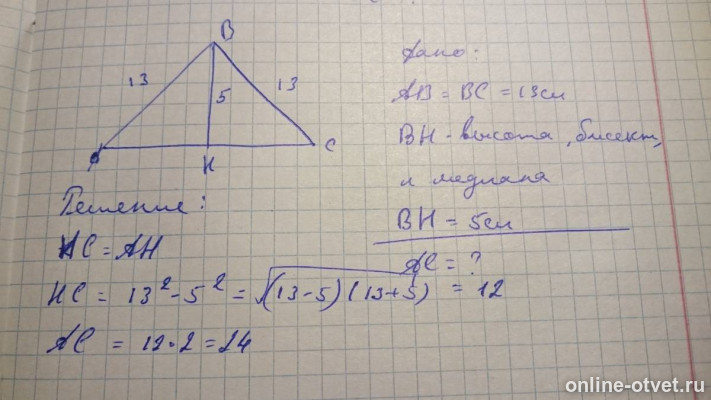 B
13
13
5
A
H
C
Дано:
AB = BC = 13см
BH - высота, бисект,
и медиана
BH = 5см
AC = ?
Решение:
HC = AH
HC = 13² - 5² = √(13-5)(13+5) = 12
AC = 12·2 = 24
online-otvet.ru